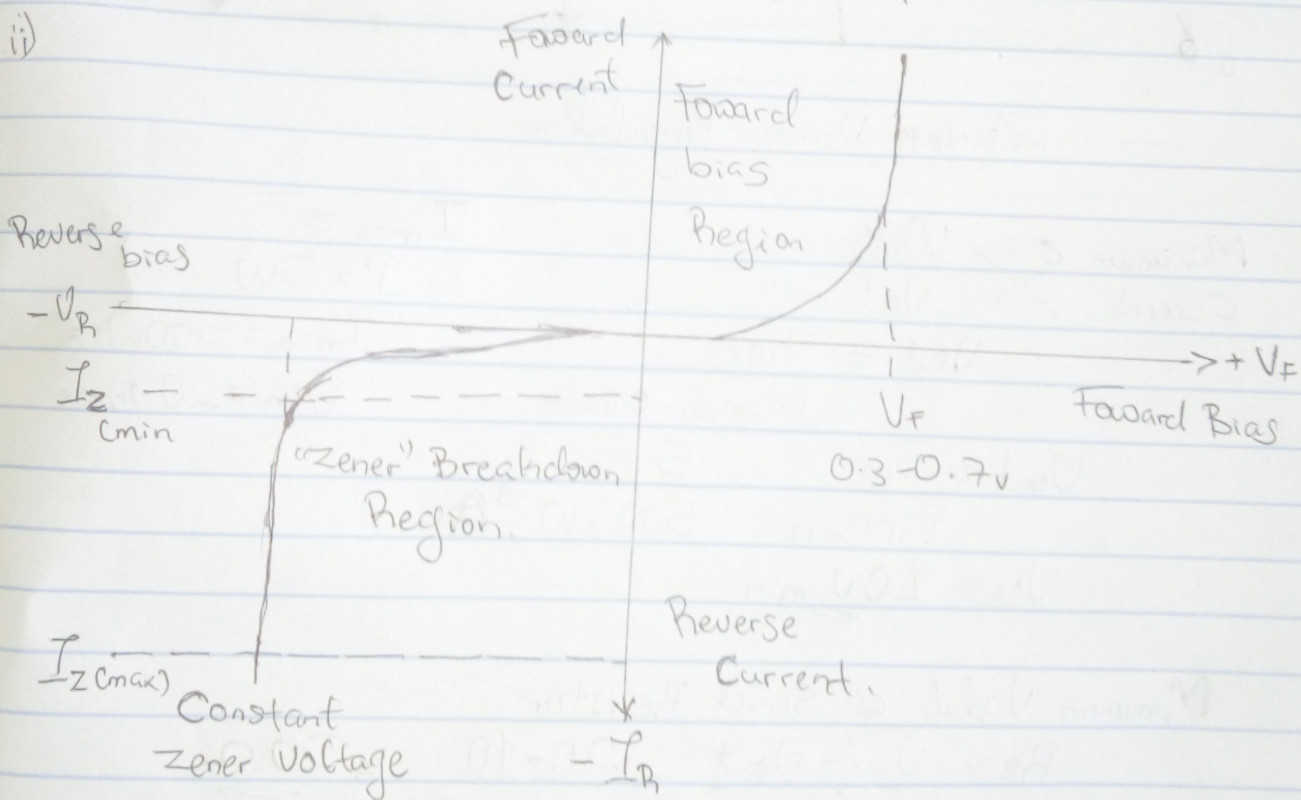 ii)
Foward
Current
Foward
bias
Region
Reverse
bias
-VR
IZ
(min
-> + VF
VF
Foward Bias
0.3-0.7v
"Zener" Breakdown
Region.
Reverse
Current.
IZ(max)
Constant
Zener Voltage
- IR